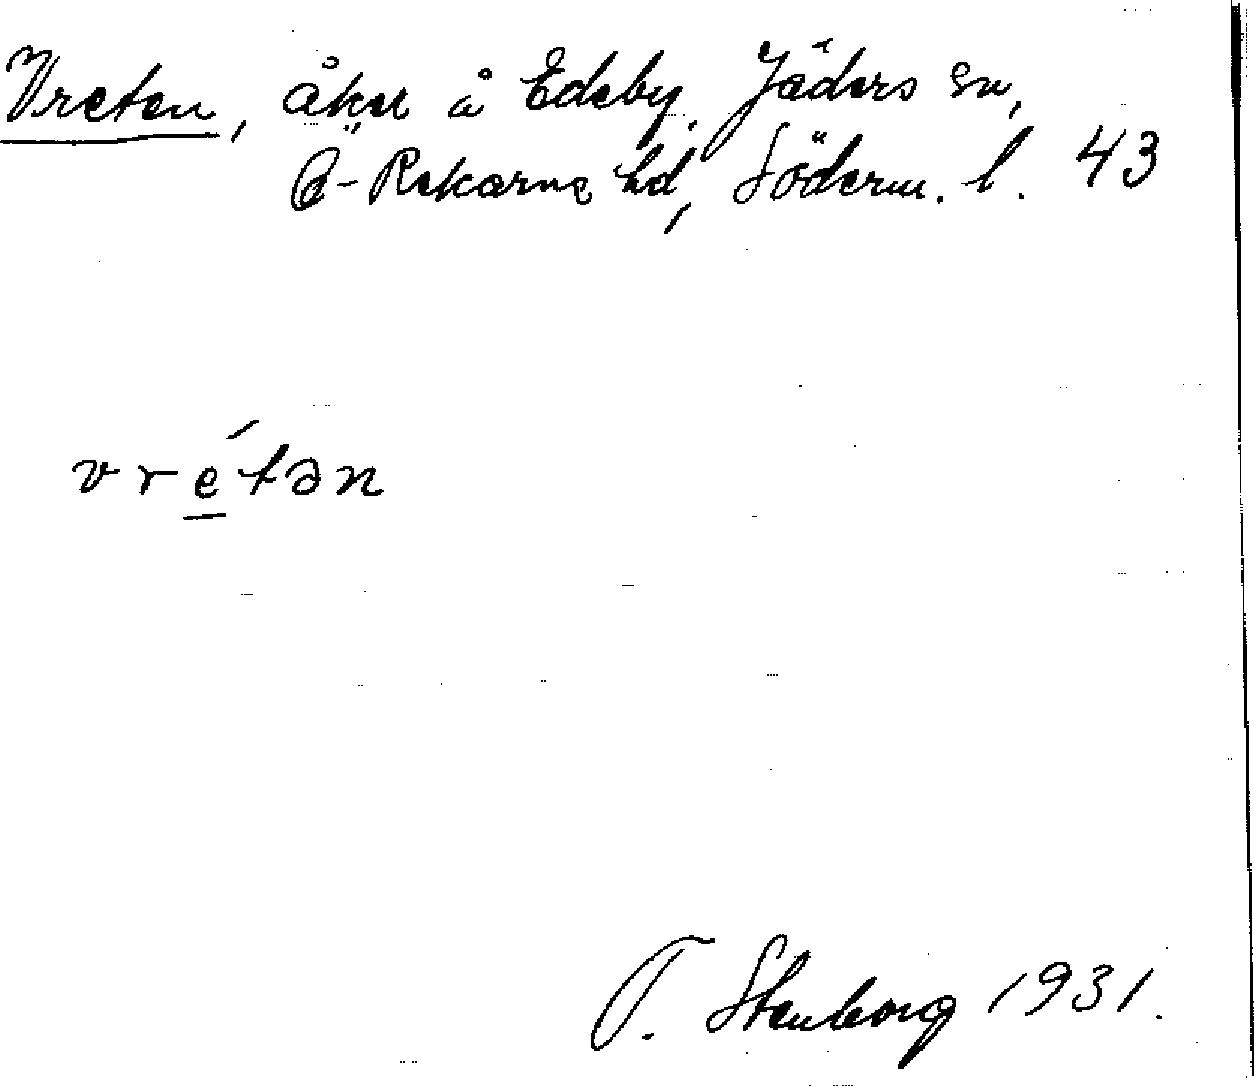 Vreten, åker å Edeby, Jäders sn,
Ö-Rekarne hd, Söderm. l. 43
vre̲´tən
T. Stenborg 1931.